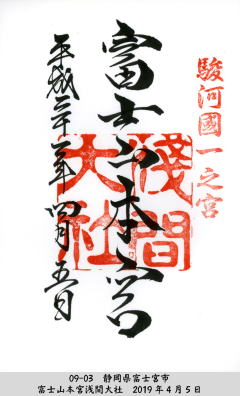 駿河國一之宮
富士山本宮
淺間
大社
平成三十一年四月五日
09-03 静岡県富士宮市
富士山本宮浅間大社 2019年4月5日